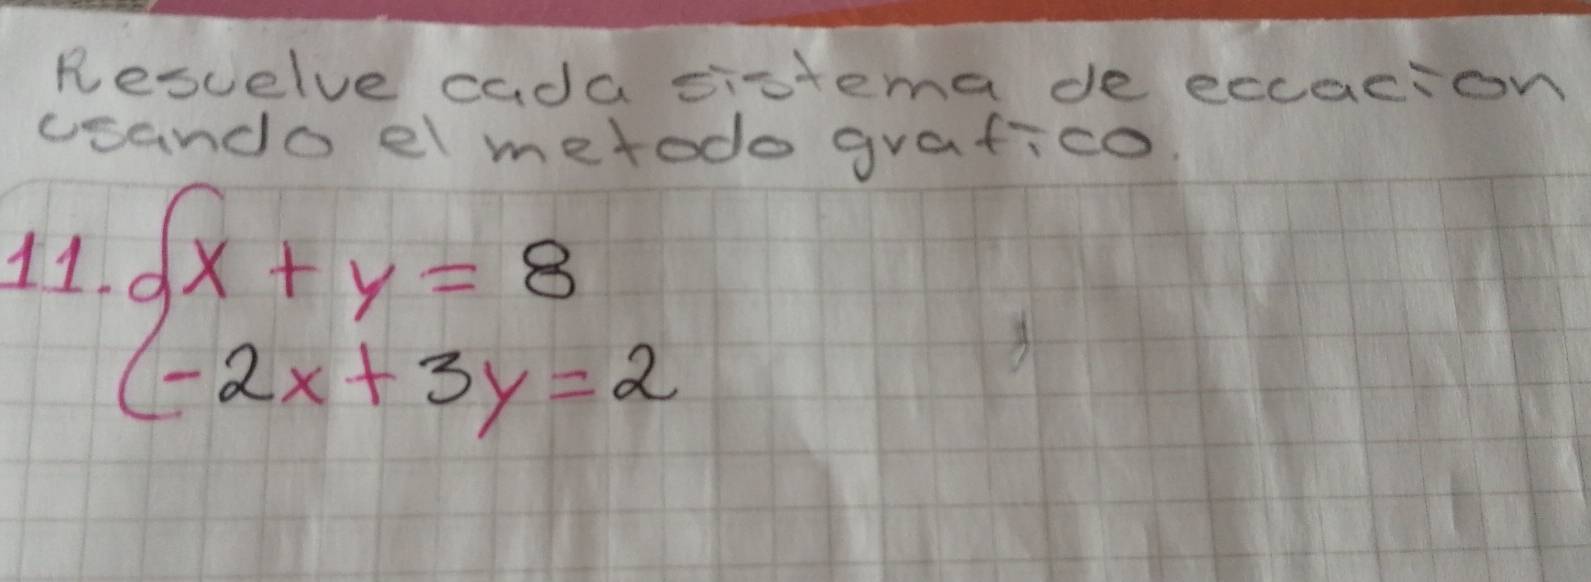 Resuelve cada sistema de eccacion
usando el metodo grafico.
11. { x + y = 8
-2x + 3y = 2